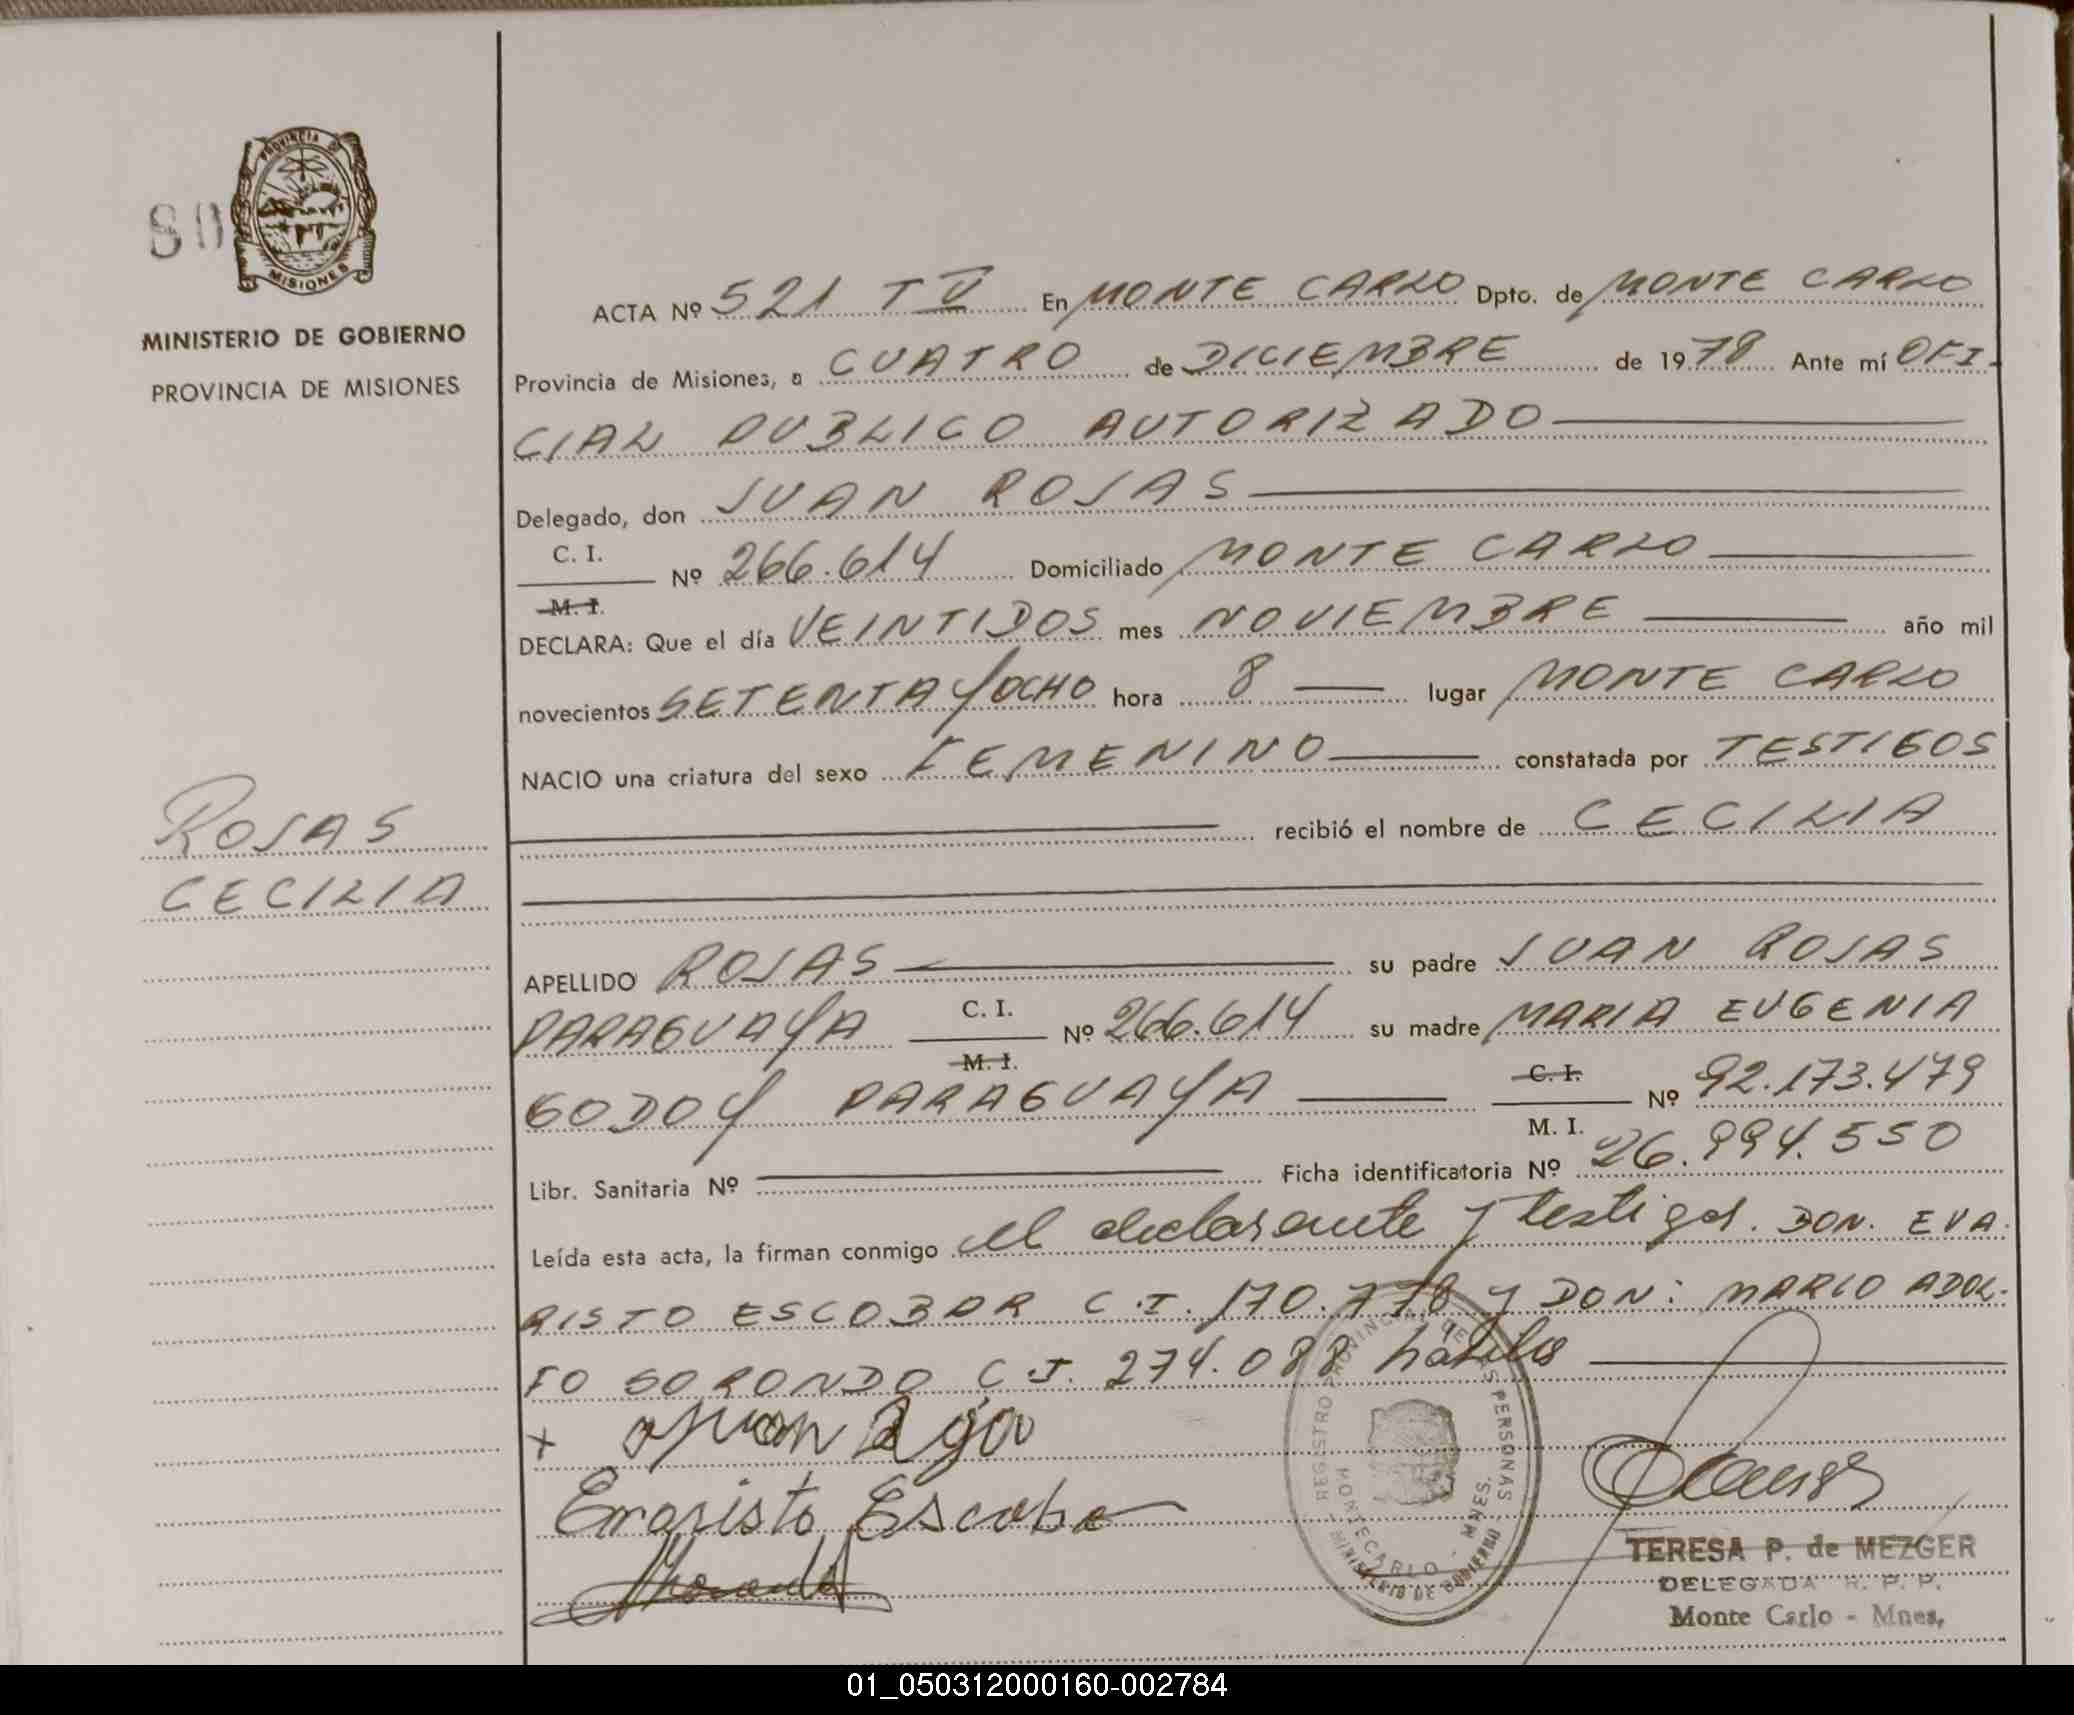 PROVINCIA DE
MISIONES
MINISTERIO DE GOBIERNO
PROVINCIA DE MISIONES
ROJAS
CECILIA
ACTA Nº 521 T V En MONTE CARLO Dpto. de MONTE CARLO
Provincia de Misiones, a CUATRO de DICIEMBRE de 1978 Ante mí OFI-
CIAL PUBLICO AUTORIZADO
Delegado, don JUAN ROJAS
C. I.
Nº 266.614 Domiciliado MONTE CARLO
M. I.
DECLARA: Que el día VEINTIDOS mes NOVIEMBRE año mil
novecientos SETENTA Y OCHO hora 8 lugar MONTE CARLO
NACIO una criatura del sexo FEMENINO constatada por TESTIGOS
recibió el nombre de CECILIA
APELLIDO ROJAS su padre JUAN ROJAS
PARAGUAYA C. I. Nº 266.614 su madre MARIA EUGENIA
M. I.
GODOY PARAGUAYA C. I. Nº 92.173.479
M. I.
Libr. Sanitaria Nº Ficha identificatoria Nº 26.994.550
Leída esta acta, la firman conmigo el declarante y testigos. DON. EVA.
RISTO ESCOBAR C.I. 170.778 y DON: MARIO ADOL-
FO GORONDO C.I. 274.088 hábiles
+
Evaristo Escobar
REGISTRO PROVINCIAL DE LAS PERSONAS
MONTECARLO - MNES.
MINISTERIO DE GOBIERNO
TERESA P. de MEZGER
DELEGADA R. P. P.
Monte Carlo - Mnes,
01_050312000160-002784